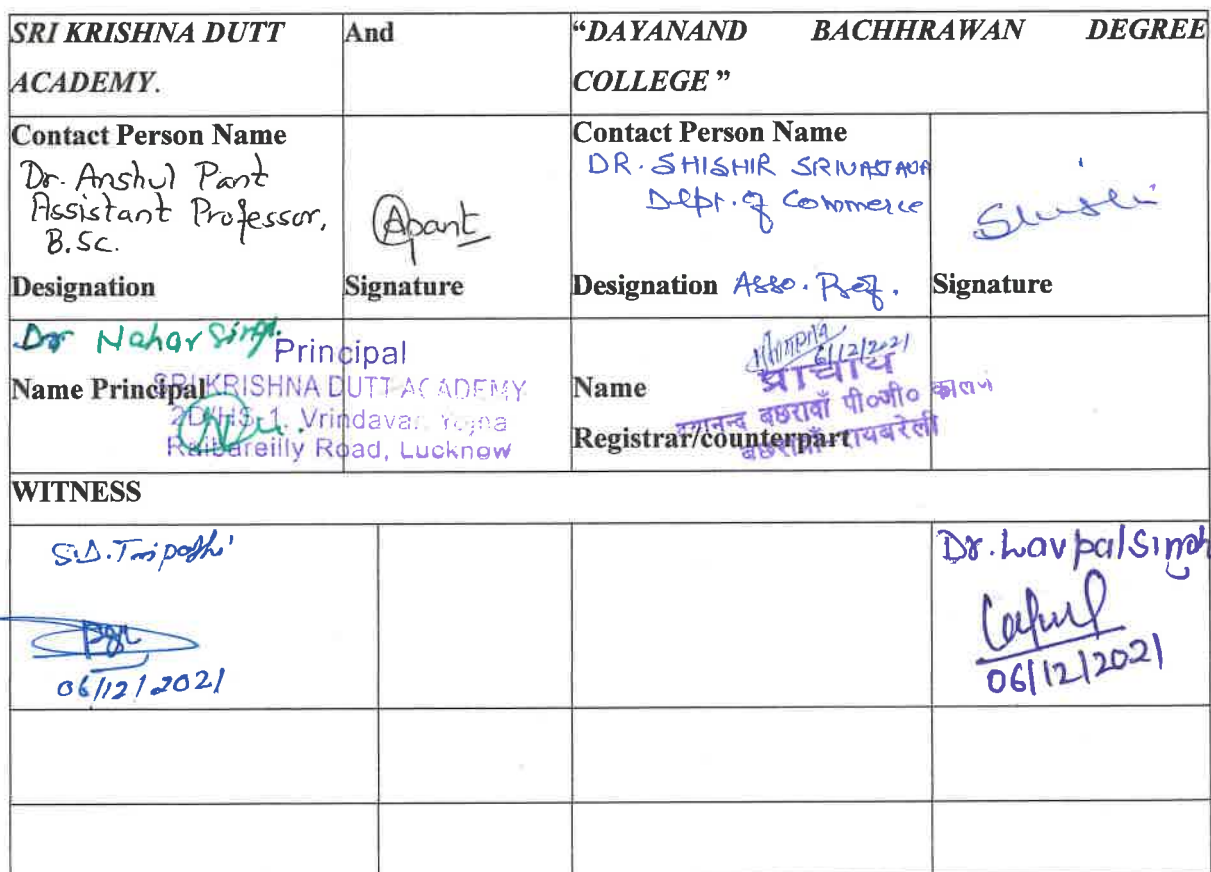 SRI KRISHNA DUTT
ACADEMY.
And
“DAYANAND BACHHRAWAN DEGREE
COLLEGE ”
Contact Person Name
Dr. Anshul Pant
Assistant Professor,
B.Sc.
Designation
Apant
Signature
Contact Person Name
DR. SHISHIR SRIVASTAVA
Dept. of Commerce
Designation Asso. Prof.
Signature
Dr Nahar Singh
Principal
Name Principal
SRI KRISHNA DUTT ACADEMY
2D/HS-1, Vrindavan Yojna
Raibareilly Road, Lucknow
6/12/2021
प्राचार्य
Name
दयानन्द बछरावाँ पी०जी० कालेज
Registrar/counterpart
बछरावाँ रायबरेली
WITNESS
S.D. Tripathi
06/12/2021
Dr. Lavpal Singh
06/12/2021